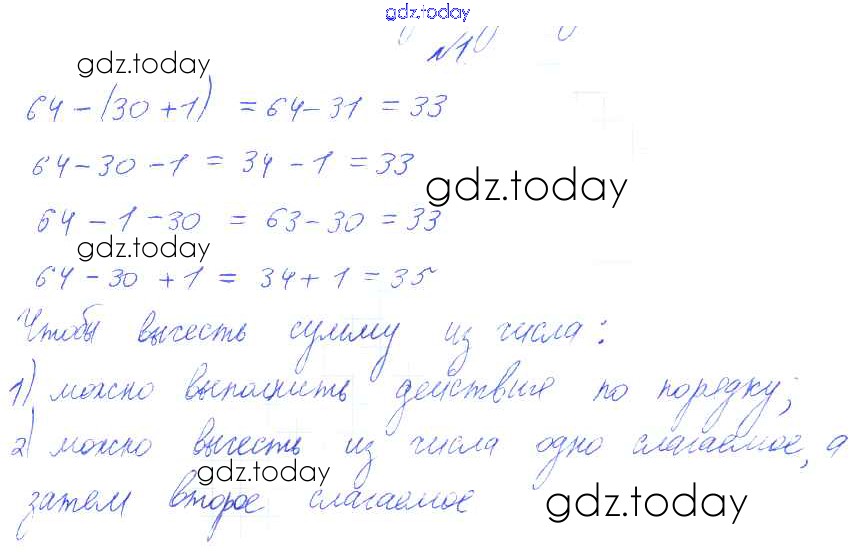 gdz.today
№1
gdz.today
64-(30+1) = 64-31 = 33
64-30-1 = 34-1 = 33
gdz.today
64-1-30 = 63-30 = 33
gdz.today
64-30+1 = 34+1 = 35
Чтобы вычесть сумму из числа:
1) можно выполнить действие по порядку;
2) можно вычесть из числа одно слагаемое, а
gdz.today
затем второе слагаемое
gdz.today